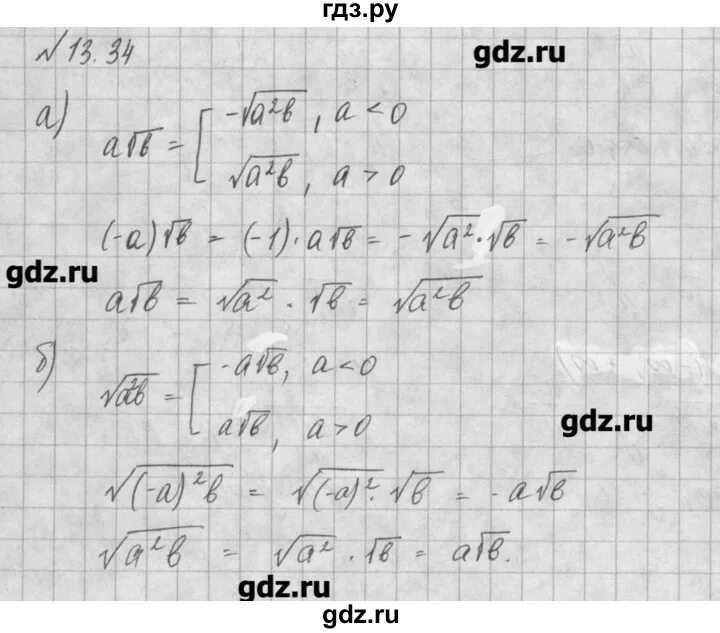 гдз.ру
№13.34
gdz.ru
а)
a√b = [ -√a²b, a < 0
√a²b, a > 0
(-a)√b = (-1)·a√b = -√a²·√b = -√a²b
gdz.ru
a√b = √a² · √b = √a²b
б)
√a²b = [ -a√b, a < 0
a√b, a > 0
gdz.ru
√(-a)²b = √(-a)²·√b = -a√b
√a²b = √a² · √b = a√b.
gdz.ru
gdz.ru